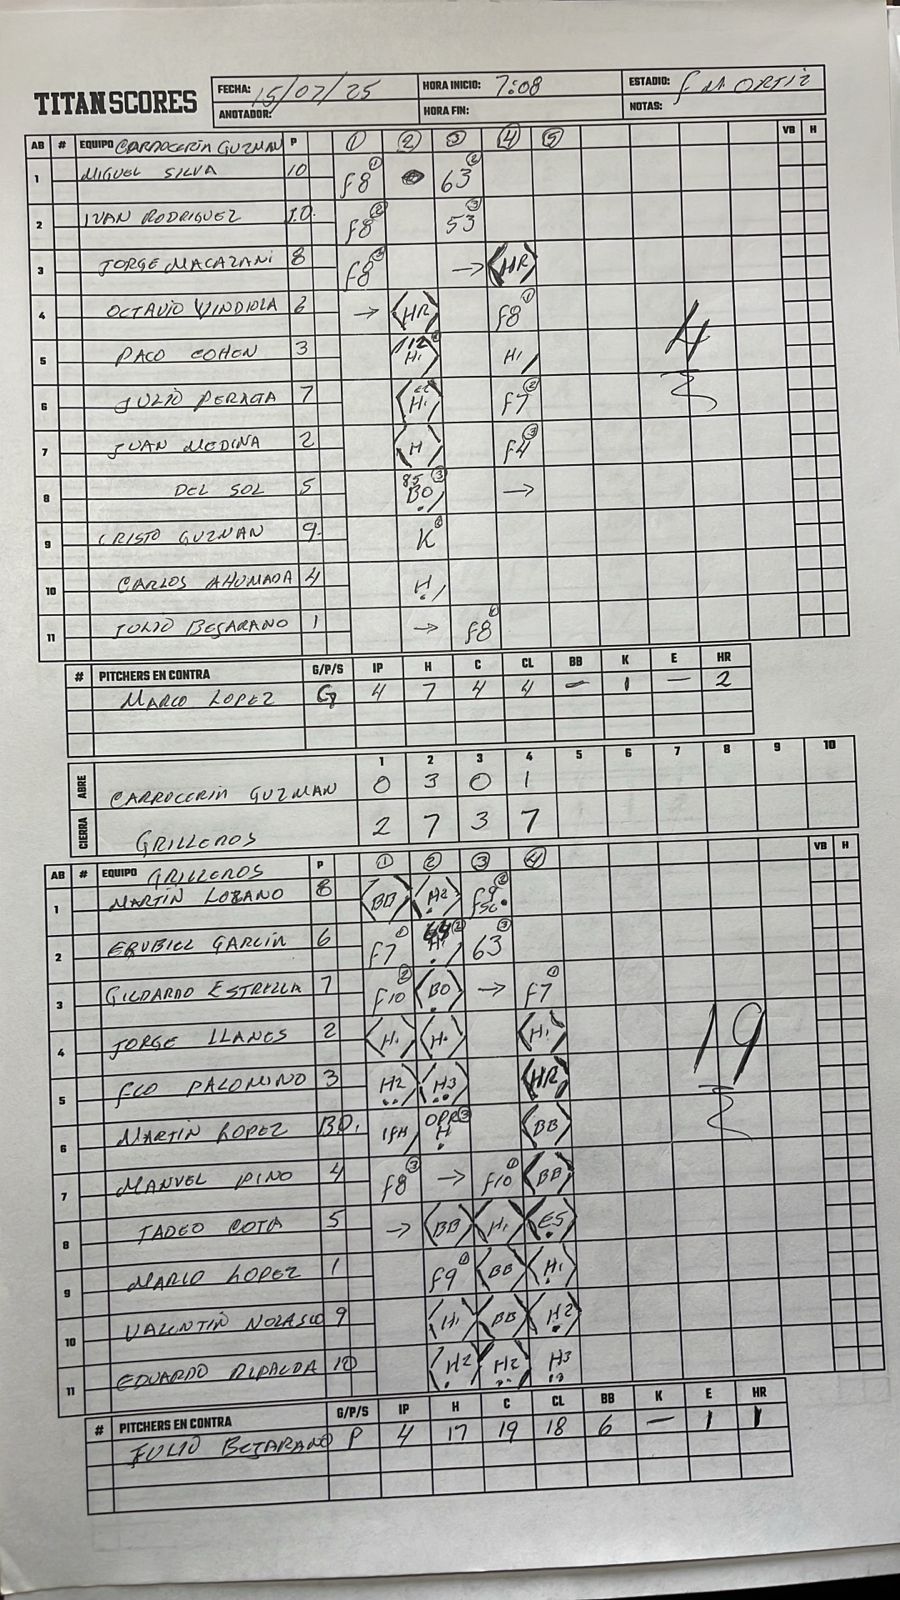 TITAN SCORES
FECHA: 15/07/25 HORA INICIO: 7:08 ESTADIO: F M ORTIZ
ANOTADOR: HORA FIN: NOTAS:
AB # EQUIPO CARROCERIA GUZMAN P 1 2 3 4 5 VB H
1 MIGUEL SILVA 10 F8 1 63 2
2 IVAN RODRIGUEZ F8 2 53 3
3 JORGE MACAZANI 8 F8 3 → HR
4 OCTAVIO VINDIOLA 6 → HR F8 1
5 PACO COHEN 3 H1 H1
6 JULIO PERAZA 7 H1 F7 2
7 JUAN MEDINA 2 H F4 3
8 DEL SOL 5 85 BO 3 →
9 CRISTO GUZMAN 9 K
10 CARLOS AHUMADA 4 H
11 JULIO BEJARANO 1 → F8
4
# PITCHERS EN CONTRA G/P/S IP H C CL BB K E HR
MARCO LOPEZ G 4 7 4 4 — 1 — 2
1 2 3 4 5 6 7 8 9 10
ABRE CARROCERIA GUZMAN 0 3 0 1
CIERRA GRILLEROS 2 7 3 7
AB # EQUIPO GRILLEROS P 1 2 3 4 VB H
1 MARTIN LOZANO 8 BB H2 F9 2
2 ERUBIEL GARCIA 6 F7 1 H1 2 63 3
3 GILDARDO ESTRELLA 7 F10 2 BO → F7 1
4 JORGE LLANES 2 H. H. H1
5 FCO PALOMINO 3 H2 H3 HR
6 MARTIN LOPEZ B.D. IFH H 3 BB
7 MANUEL PINO 4 F8 3 → F10 1 BB
8 TADEO COTA 5 → BB H1 E5
9 MARIO LOPEZ 1 F9 1 BB H1
10 VALENTIN NOLASCO 9 H1 BB H2
11 EDUARDO RIPALDA 10 H2 H2 H3
19
# PITCHERS EN CONTRA G/P/S IP H C CL BB K E HR
JULIO BEJARANO P 4 17 19 18 6 — 1 1